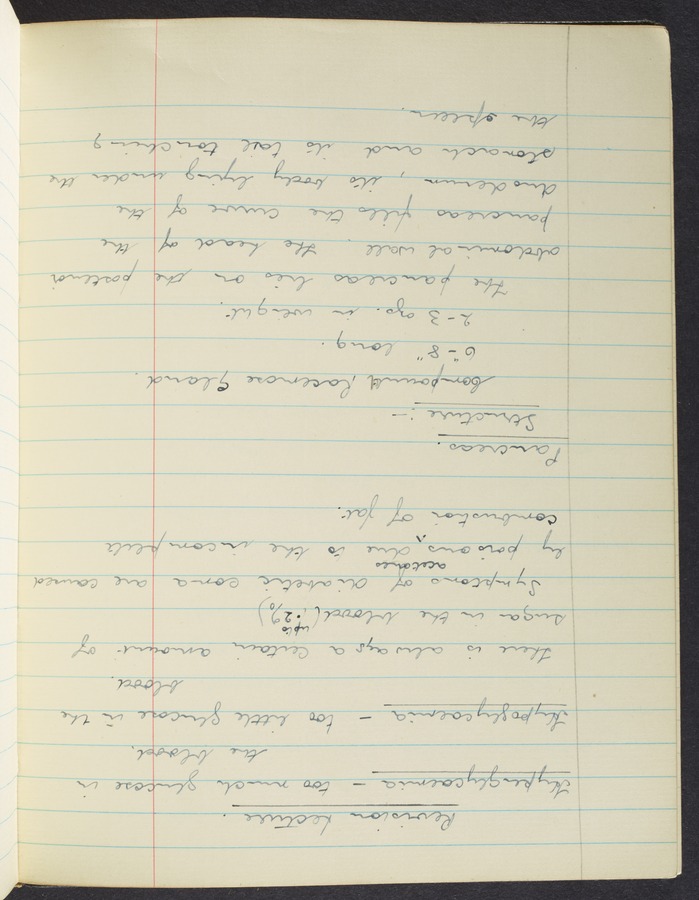 Revision Lecture.
Hyperglycaemia – too much glucose in
the blood.
Hypoglycaemia – too little glucose in the
blood.
There is always a certain amount of
sugar in the blood (up to .2%)
Symptoms of diabetic coma are caused
by poisons acetones due to the incomplete
combustion of fat.
Pancreas.
Structure :–
Compound, racemose gland.
6"–8" long.
2–3 ozs. in weight.
The pancreas lies on the posterior
abdominal wall. The head of the
pancreas fills the curve of the
duodenum, it's body lying under the
stomach and it's tail touching
the spleen.